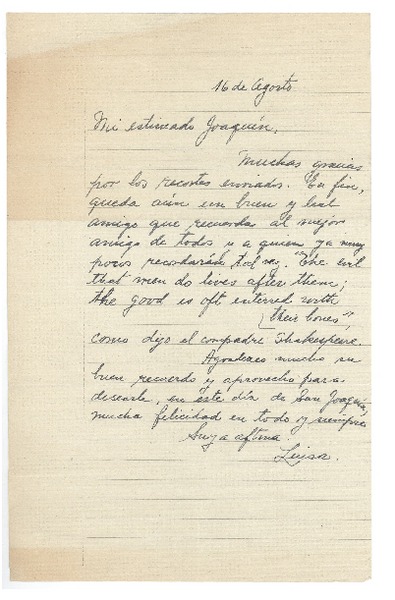 16 de Agosto
Mi estimado Joaquín,
Muchas gracias
por los recortes enviados. En fin,
queda aún un buen y leal
amigo que recuerda al mejor
amigo de todos y a quien ya muy
pocos recordarán tal vez. "The evil
that men do lives after them;
the good is oft interred with
their bones",
como dijo el compadre Shakespeare.
Agradezco mucho su
buen recuerdo y aprovecho para
desearle, en este día de San Joaquín,
mucha felicidad en todo y siempre
Suya aftma.
Luisa.